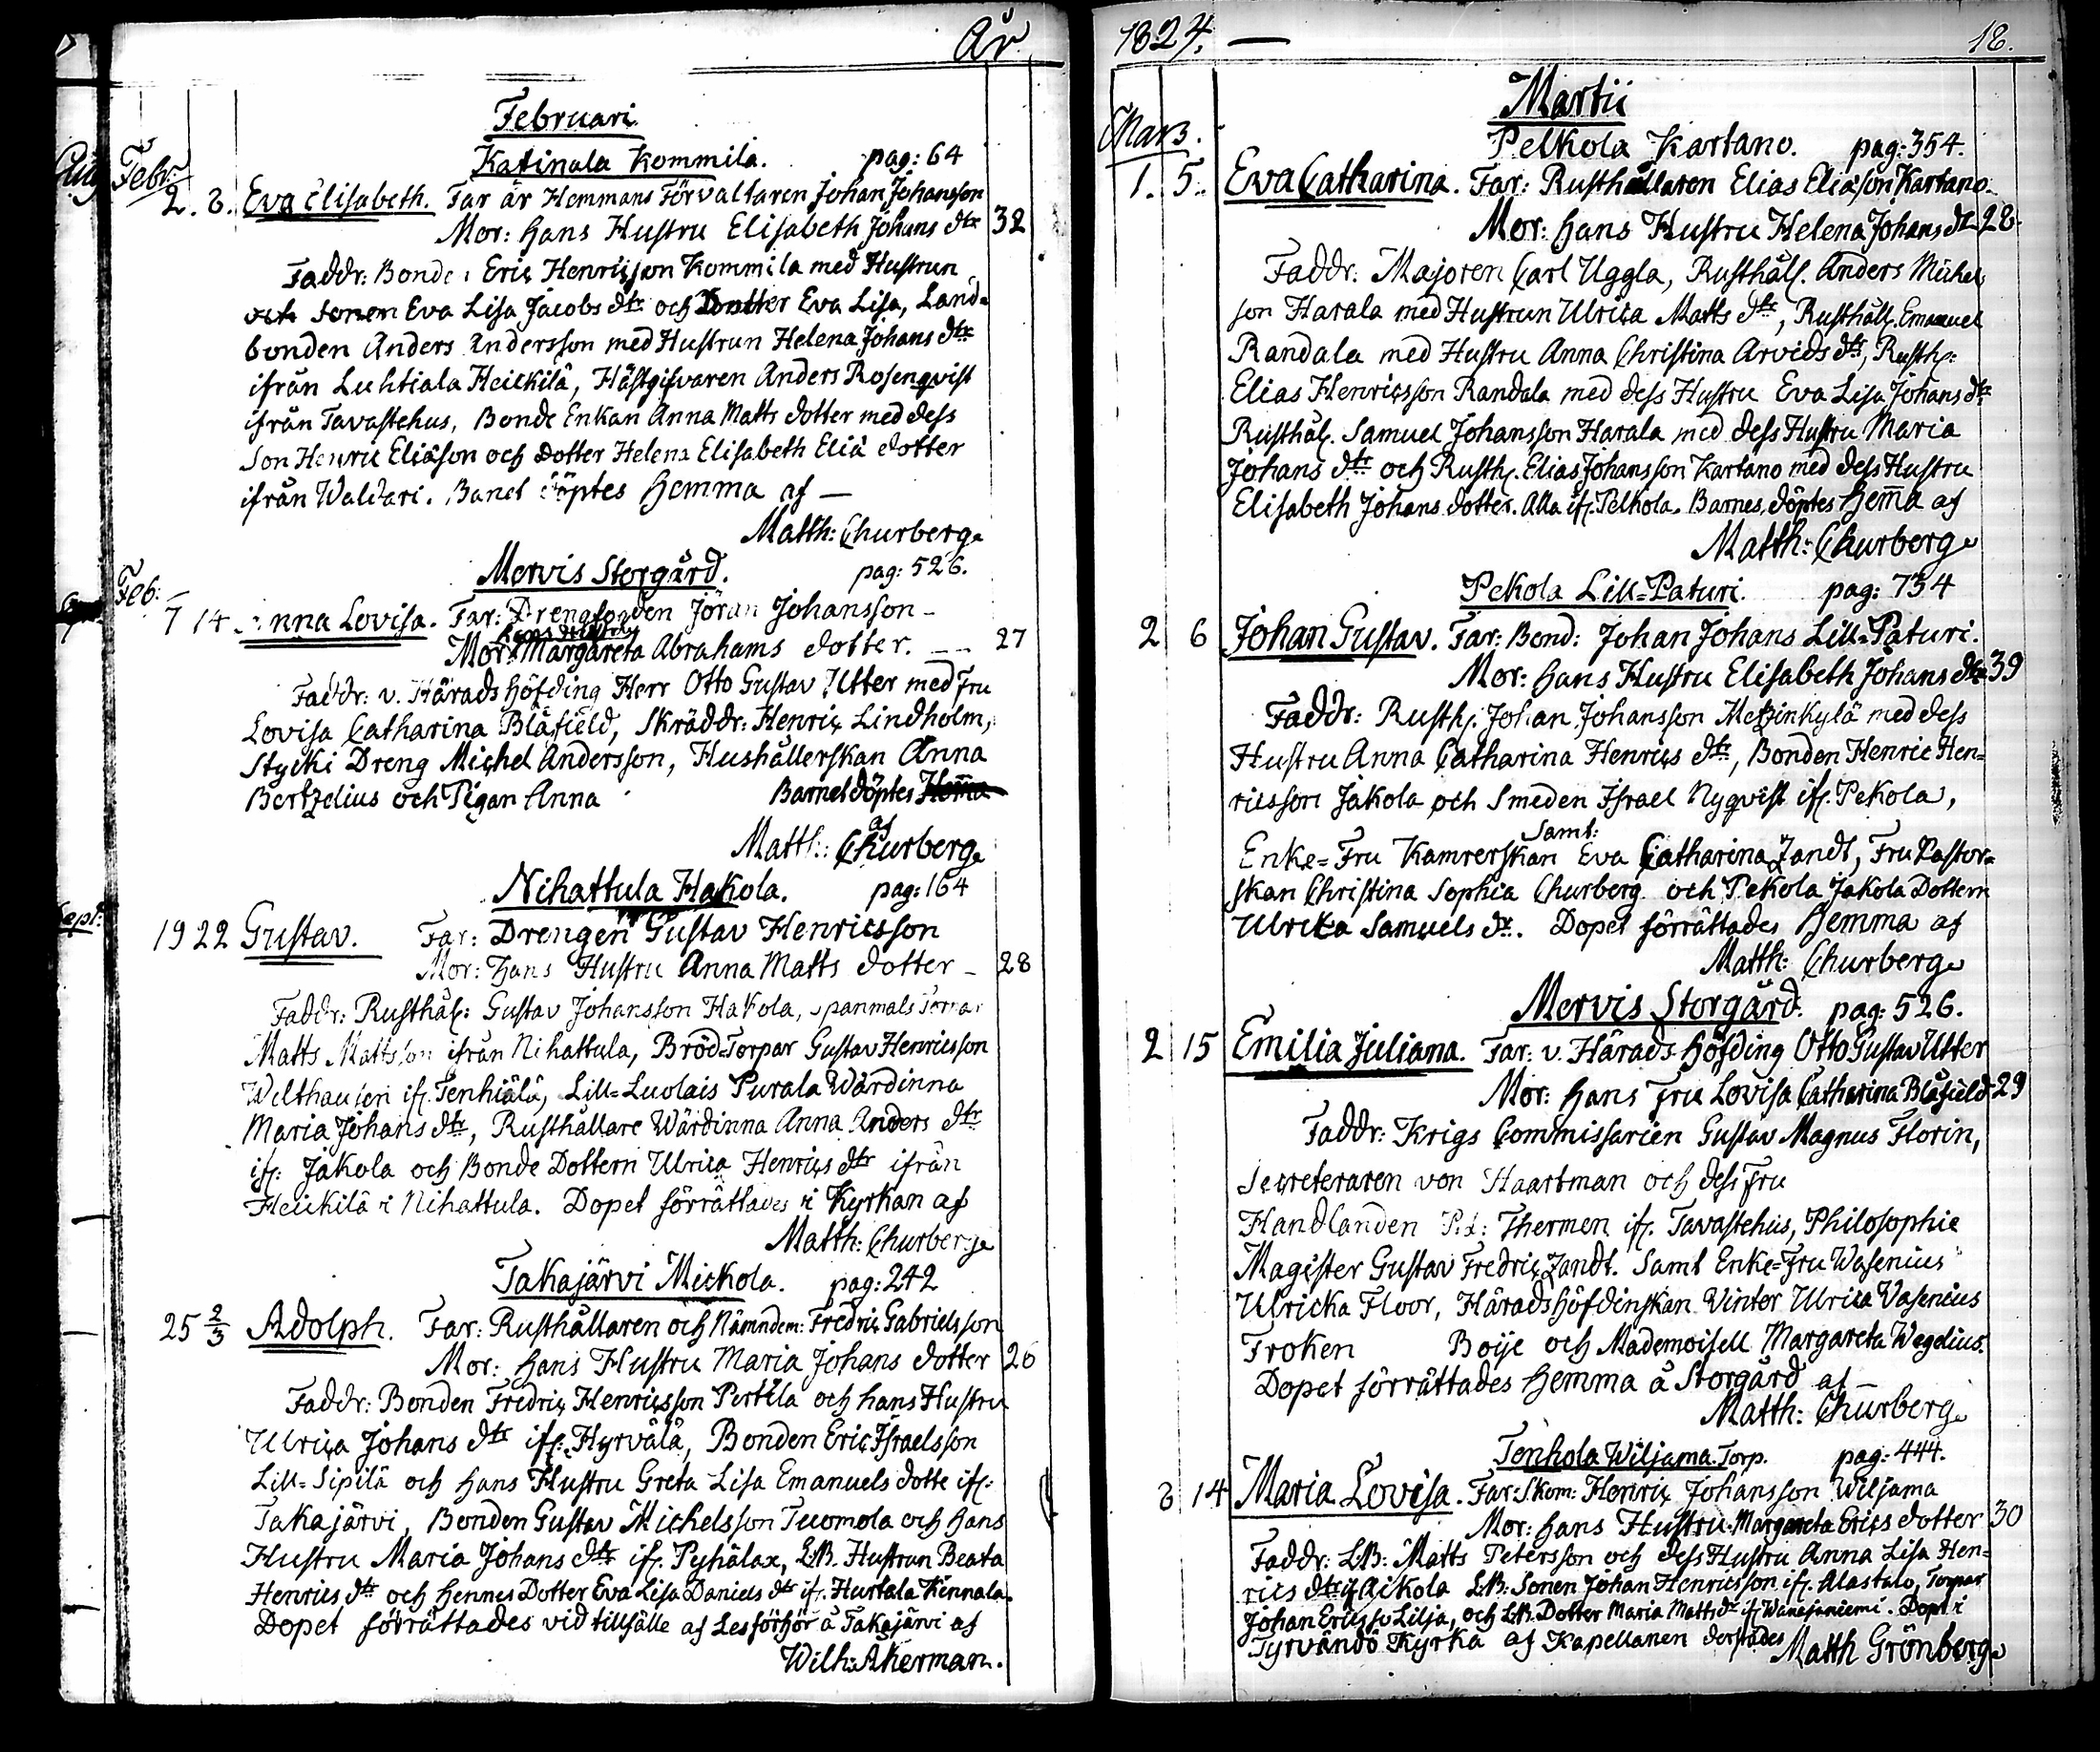 År
Februari
Katinala Kommila. pag: 64
Febr:
2. 8. Eva Elisabeth. Far är Hemmans Förvaltaren Johan Johansson
Mor: Hans Hustru Elisabeth Johans dtr 32
Faddr: Bonden Eric Henricsson Kommila med Hustrun
Eva Lisa Jacobs dtr och Dotter Eva Lisa, Land-
bonden Anders Andersson med Hustrun Helena Johans dtr
ifrån Luhtiala Heickilä, Hästgifvaren Anders Rosenqvist
ifrån Tavastehus, Bonde Enkan Anna Matts dotter med dess
Son Henric Eliäson och Dotter Helena Elisabeth Eliä dotter
ifrån Waldari. Barnet döptes Hemma af —
Matth: Churberg
Mervis Storgård. pag: 526.
Feb:
7 14 Anna Lovisa. Far: Drengfogden Jöran Johansson –
hans Hustru
Mor: Margareta Abrahams dotter. –– 27
Faddr: v. Härads Höfding Herr Otto Gustav Utter med Fru
Lovisa Catharina Blåfield, Skräddr: Henric Lindholm,
Stycki Dreng Michel Andersson, Hushållerskan Anna
Bertzelius och Pigan Anna Barnet döptes Hem̄a
af
Matth: Churberg
Nihattula Hakola. pag: 164
19 22 Gustav. Far: Drengen Gustav Henricsson
Mor: Hans Hustru Anna Matts dotter – 28
Faddr: Rusthål: Gustav Johansson Hakola, Spanmals Torpar
Matts Mattsson ifrån Nihattula, Bröd-Torpar Gustav Henricsson
Welthausen if. Tenhiälä, Lill-Luolais Purala Wärdinna
Maria Johans dtr, Rusthållare Wärdinna Anna Anders dtr
if: Jakola och Bonde Dottern Ulrica Henrics dtr ifrån
Heickilä i Nihattula. Dopet förrättades i Kyrkan af
Matth: Churberg
Takajärvi Mickola. pag: 242
25 2/3 Adolph. Far: Rusthållaren och Nämndem: Fredric Gabrielsson
Mor: Hans Hustru Maria Johans dotter 26
Faddr: Bonden Fredric Henricsson Perttila och hans Hustru
Ulrica Johans dtr if: Hyrvälä, Bonden Eric Israelsson
Lill-Sipilä och Hans Hustru Greta Lisa Emanuels dotte if:
Takajärvi, Bonden Gustav Michelsson Tuomola och Hans
Hustru Maria Johans dtr if. Pyhälax, L:B. Hustrun Beata
Henrics dtr och Hennes Dotter Eva Lisa Daniels dtr if. Hurtala Kinnala.
Dopet förrättades vid tillfälle af Läsförhör å Takajärvi af
Wilh: Åkerman.
1824. — 18.
Martii
Mars.
Pelkola Kartano. pag: 354.
1. 5. Eva Catharina. Far: Rusthållaren Elias Eliäson Kartano
Mor: Hans Hustru Helena Johans dtr 28
Faddr: Majoren Carl Uggla, Rusthål. Anders Michel
son Harala med Hustrun Ulrica Matts dtr, Rusthål. Emanuel
Randala med Hustru Anna Christina Arvids dtr, Rusth:
Elias Henricsson Randala med dess Hustru Eva Lisa Johans dtr
Rusthål. Samuel Johansson Harala med dess Hustru Maria
Johans dtr och Rusth. Elias Johansson Kartano med dess Hustru
Elisabeth Johans dotter. Alla if. Pelkola. Barnet döptes Hem̄a af
Matth: Churberg
Pekola Lill-Paturi. pag: 734
2 6 Johan Gustav. Far: Bond: Johan Johans Lill-Paturi.
Mor: Hans Hustru Elisabeth Johans dtr 39
Faddr: Rusth. Johan Johansson Metzinkylä med dess
Hustru Anna Catharina Henrics dtr, Bonden Henric Hen-
ricsson Jakola, och Smeden Israel Nyqvist if. Pekola,
Samt:
Enke-Fru Kamrerskan Eva Catharina Zandt, Fru Pastor-
skan Christina Sophia Churberg och Pekola Jakola Dottern
Ulrica Samuels dr. Dopet förrättades Hemma af
Matth: Churberg
Mervis Storgård. pag: 526.
2 15 Emilia Juliana. Far: v. Härads-Höfding Otto Gustav Utter
Mor: Hans Fru Lovisa Catharina Blåfield 29
Faddr: Krigs Commissarien Gustav Magnus Florin,
Secreteraren von Haartman och dess Fru
Handlanden Thermen if. Tavastehus, Philosophie
Magister Gustav Fredric Zandt. Samt Enke-Fru Wasenius
Ulricka Floor, Häradshöfdinskan Winter Ulrica Wasenius
Froken Boije och Mademoisell Margareta Wegelius.
Dopet förrättades Hemma å Storgård af –
Matth: Churberg
Tenhola Wiljama Torp. pag: 444.
8 14 Maria Lovisa. Far: Skom: Henric Johansson Wiljama
Mor: Hans Hustru Margareta Erics dotter 30
Faddr: L:B: Matts Petersson och dess Hustru Anna Lisa Hen-
rics dtr if Aikola L:B: Sonen Johan Henricsson if. Alastalo, Torpar
Johan Ericsso Lilja, och L:B. Dotter Maria Matts dr if Wanajaniemi. Dopt i
Tyrväntö Kyrka af Kapellanen derstädes Matth Grönberg